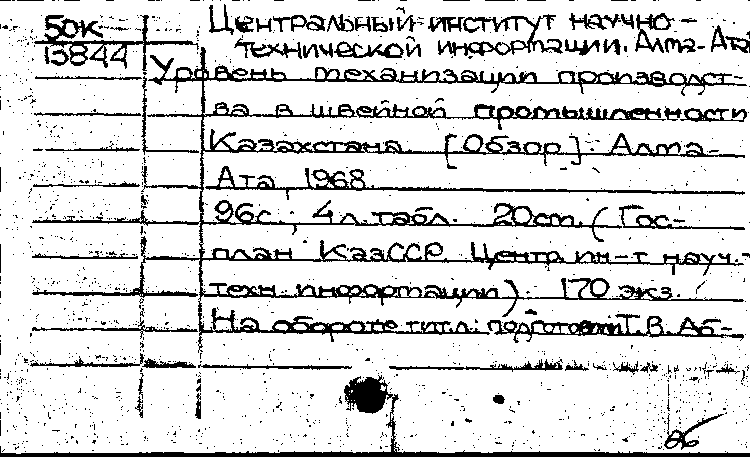 50к
13844
Центральный институт научно-
технической информации. Алма-Ата
Уровень механизации производст-
ва в швейной промышленности
Казахстана. [Обзор]. Алма-
Ата, 1968.
96с.; 4 л. табл. 20см. (Гос-
план КазССР. Центр. ин-т науч.-
техн. информации). 170 экз.
На обороте тит. л.: подготовил Т.В. Аб-